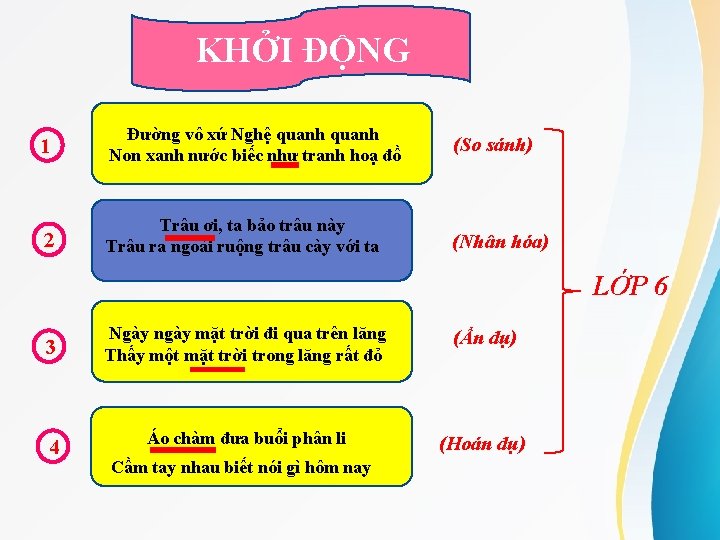 KHỞI ĐỘNG
1
Đường vô xứ Nghệ quanh quanh
Non xanh nước biếc như tranh hoạ đồ
(So sánh)
2
Trâu ơi, ta bảo trâu này
Trâu ra ngoài ruộng trâu cày với ta
(Nhân hóa)
LỚP 6
3
Ngày ngày mặt trời đi qua trên lăng
Thấy một mặt trời trong lăng rất đỏ
(Ẩn dụ)
4
Áo chàm đưa buổi phân li
Cầm tay nhau biết nói gì hôm nay
(Hoán dụ)